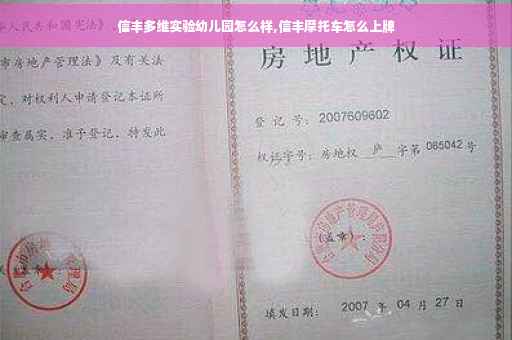 信丰多维实验幼儿园怎么样,信丰摩托车怎么上牌
人民共和国宪法》及
市房地产管理法》及有关法
定，对权利人申请登记本证所
审查属实，准予登记，特发此
房地产权证
登记号：2007609602
权证字号：房地权 庐 字第 065042 号
(盖章)：
填发日期：2007 年 04 月 27 日